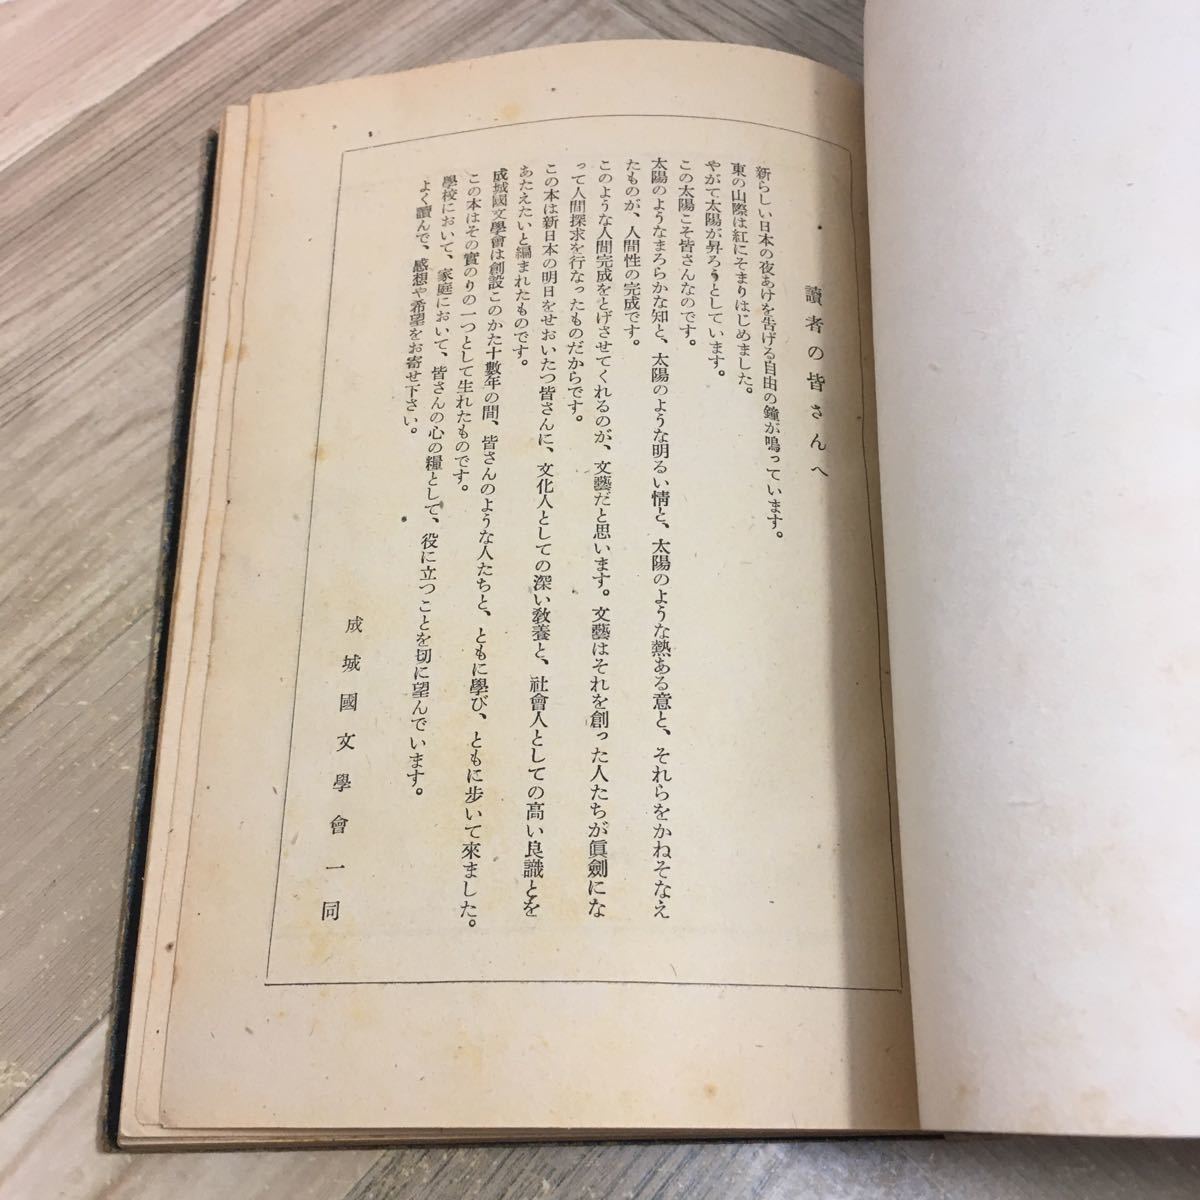 讀者の皆さんへ
新らしい日本の夜あけを告げる自由の鐘が鳴っています。
東の山際は紅にそまりはじめました。
やがて太陽が昇ろうとしています。
この太陽こそ皆さんなのです。
太陽のようなまろらかな知と、太陽のような明るい情と、太陽のような熱ある意と、それらをかねそなえ
たものが、人間性の完成です。
このような人間完成をとげさせてくれるのが、文藝だと思います。文藝はそれを創った人たちが眞劍にな
って人間探求を行なったものだからです。
この本は新日本の明日をせおいたつ皆さんに、文化人としての深い敎養と、社會人としての高い良識とを
あたえたいと編まれたものです。
成城國文學會は創設このかた十數年の間、皆さんのような人たちと、ともに學び、ともに步いて來ました。
この本はその實のりの一つとして生れたものです。
學校において、家庭において、皆さんの心の糧として、役に立つことを切に望んでいます。
よく讀んで、感想や希望をお寄せ下さい。
成城國文學會一同